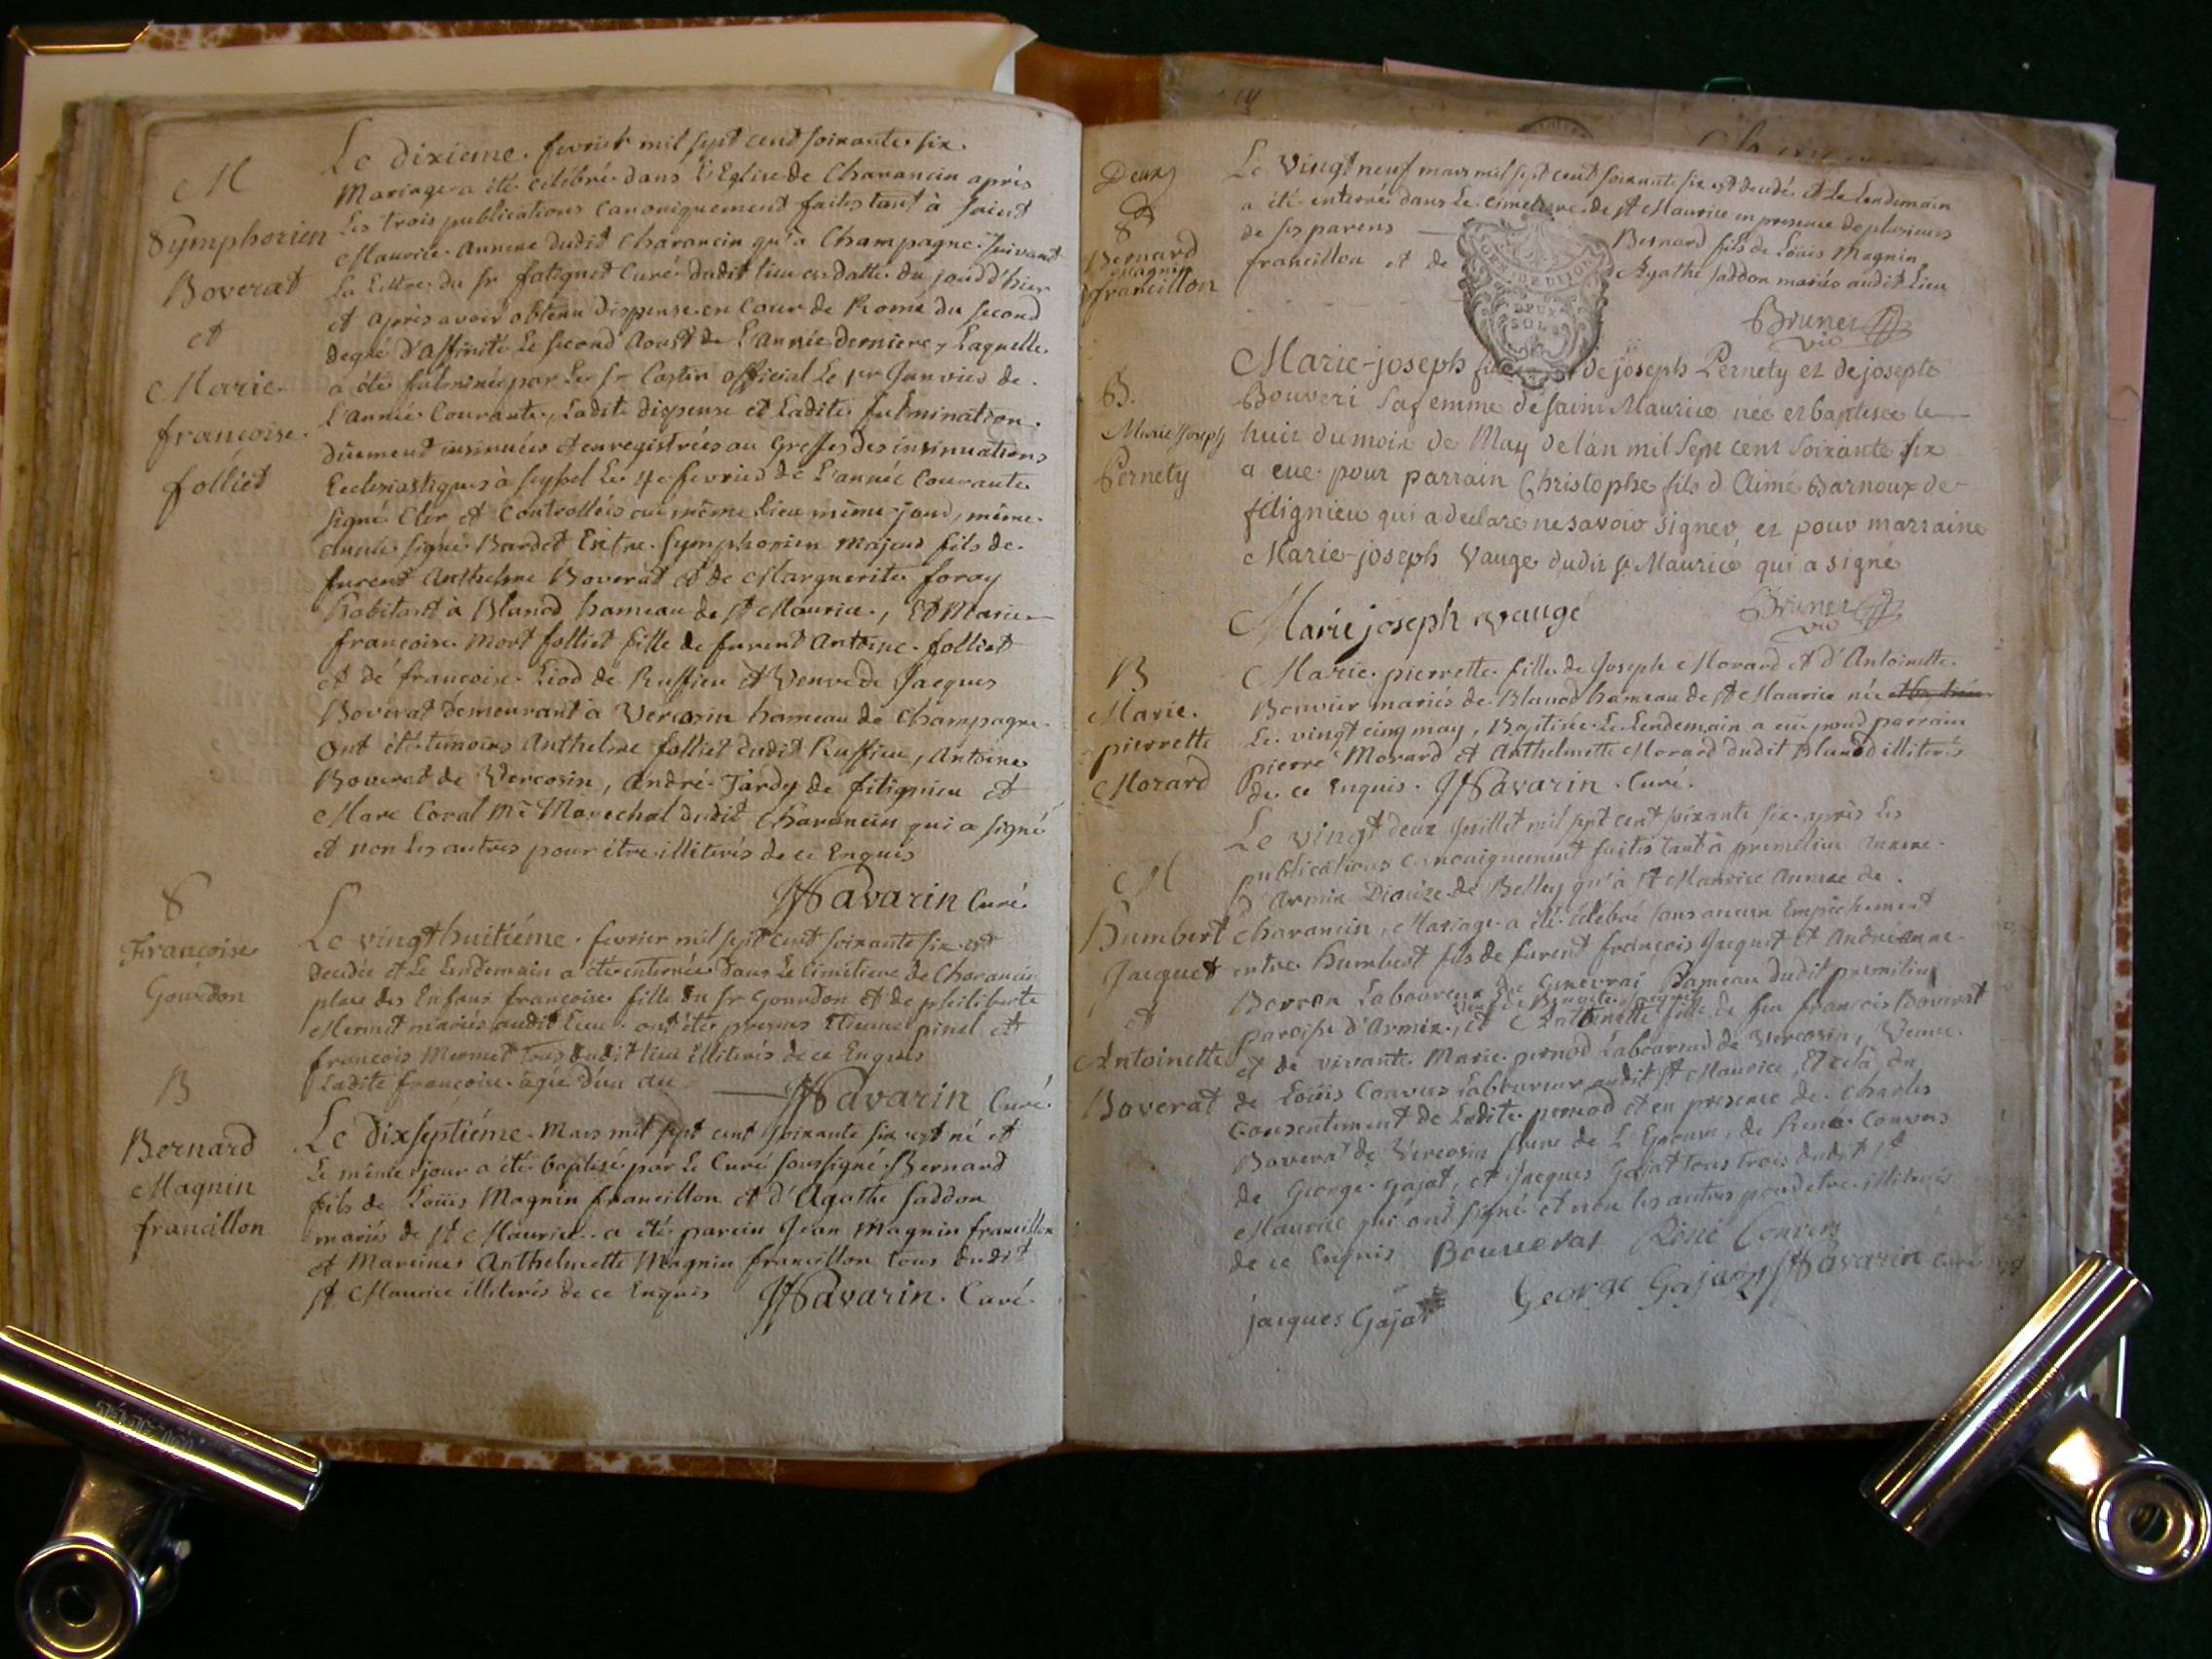 M
Symphorien
Boverat
et
Marie
françoise
folliet
Le dixieme fevrier mil sept cent soixante six
Mariage a été célébré dans L'Eglise de Charancin après
Les trois publications canoniquement faites tant à saint
Maurice Annexe dudit Charancin qu'à Champagne suivant
La Lettre du sr fatignet Curé dudit lieu en datte du jourd'hier
et après avoir obtenu dispense en Cour de Rome du second
degré d'Affinité Le second Aoust de L'année derniere, Laquelle
a été fulminée par Le sr Costin official Le 1er Janvier de
L'année Courante, Ladite dispense et Ladite fulmination
duement insinuées et enregistrées au Greffe des insinuations
Ecclesiastiques à seyssel Le 4e fevrier de L'année Courante
signé Cler et Controllées au même Lieu même jour, même
année signé Bardet Entre Symphorien majeur fils de
furent Anthelme Boverat et de Marguerite foray
habitant à Blanod hameau de st Maurice, Et Marie
françoise Mort folliet fille de furent Antoine folliet
et de françoise Liod de Ruffieu et Veuve de Jacques
Boverat demeurant à Vercosin hameau de Champagne
Ont été temoins Anthelme folliet dudit Ruffieu, Antoine
Boverat de Vercosin, André Tardy de fitignieu et
Marc Coral Me Marechal dudit Charancin qui a signé
et non Les autres pour être illiterés de ce Enquis
Navarin Curé
S
Françoise
Gourdon
Le vingt huitiéme fevrier mil sept cent soixante six est
decedée et Le Lendemain a été enterrée dans Le Cimetiere de Charancin
place des Enfans françoise fille du sr Gourdon et de philiberte
Mermet mariés audit Lieu ont été presens Etienne pinel et
françois Mermet tous dudit lieu illiterés de ce Enquis
Ladite françoise agée d'un an
Navarin Curé
B
Bernard
Magnin
francillon
Le dixseptiéme Mars mil sept cent soixante six est né et
Le même jour a été baptisé par Le Curé soussigné Bernard
fils de Loüis Magnin francillon et d'Agathe saddon
mariés de st Maurice a été parein Jean Magnin francillon
et Mareine Anthelmette Magnin francillon tous dudit
st Maurice illiterés de ce Enquis Navarin Curé
Deux
S
Bernard
Magnin
francillon
Le Vingt neuf mars mil sept cent soixante six est decedé et Le Lendemain
a été enterré dans Le cimetiere de st Maurice en presence de plusieurs
de ses parens Bernard fils de Loüis Magnin
francillon et de Agathe saddon mariés audit Lieu
GEN. DE DIJON
DEUX
SOLS
Bruner
vic
B.
Marie Joseph
Pernety
Marie-joseph fille de joseph Pernety et de josepte
Bouveri sa femme de saint Maurice née et baptisée le
huit du mois de May de lan mil sept cent soixante six
a eue pour parrain Christophe fils d Aimé Barnoux de
fitignieu qui a declaré ne savoir signer, et pour marraine
Marie-joseph Vauge dudit st Maurice qui a signé
Marie joseph vauge Bruner
vic
B
Marie
pierrette
Morard
Marie pierrette fille de Joseph Morard et d'Antoinette
Bonvier mariés de Blanod hameau de st Maurice née
Le vingt cinq may, Baptisée Le Lendemain a eu pour parrain
pierre Morard et Anthelmette Morard dudit Blanod illiterés
de ce Enquis. Navarin Curé.
M
Humbert
Jacquet
et
Antoinette
Boverat
Le vingt deux Juillet mil sept cent soixante six après les
publications canoniquement faites tant à premilieu Annexe
d'Armix Diocèze de Belley qu'à st Maurice Annexe de
Charancin, Mariage a été célébré sans aucun Empêchement
entre Humbert fils de furent françois Jacquet et Andreanne
Borron Laboureur du Genevrai hameau dudit premilieu
veuf de Benoite Jacquet
paroisse d'Armix, et Antoinette fille de feu françois Boverat
et de vivante Marie pernod Laboureur de Vercosin, Veuve
de Loüis Convers Laboureur audit st Maurice, Et cela du
Consentement de Ladite pernod et en presence de Charles
Boverat de Vercosin frere de L'Epouse, de René Convers
de George Gajat, et Jacques Gajat tous trois dudit st
Maurice qui ont signé et non les autres pour etre illiterés
de ce Enquis Bouverat René Convers
jacques Gajat George Gajat Navarin Curé